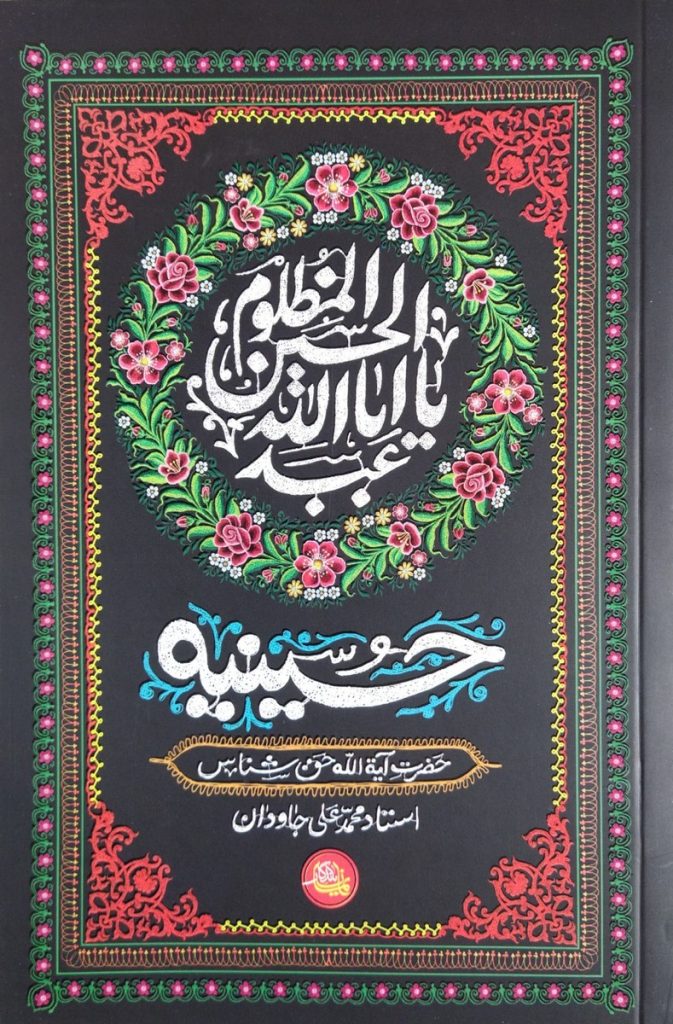 یا ابا عبد الله الحسین المظلوم
حسینیه
حضرت آیة الله حق شناس
استاد محمد علی جاودان